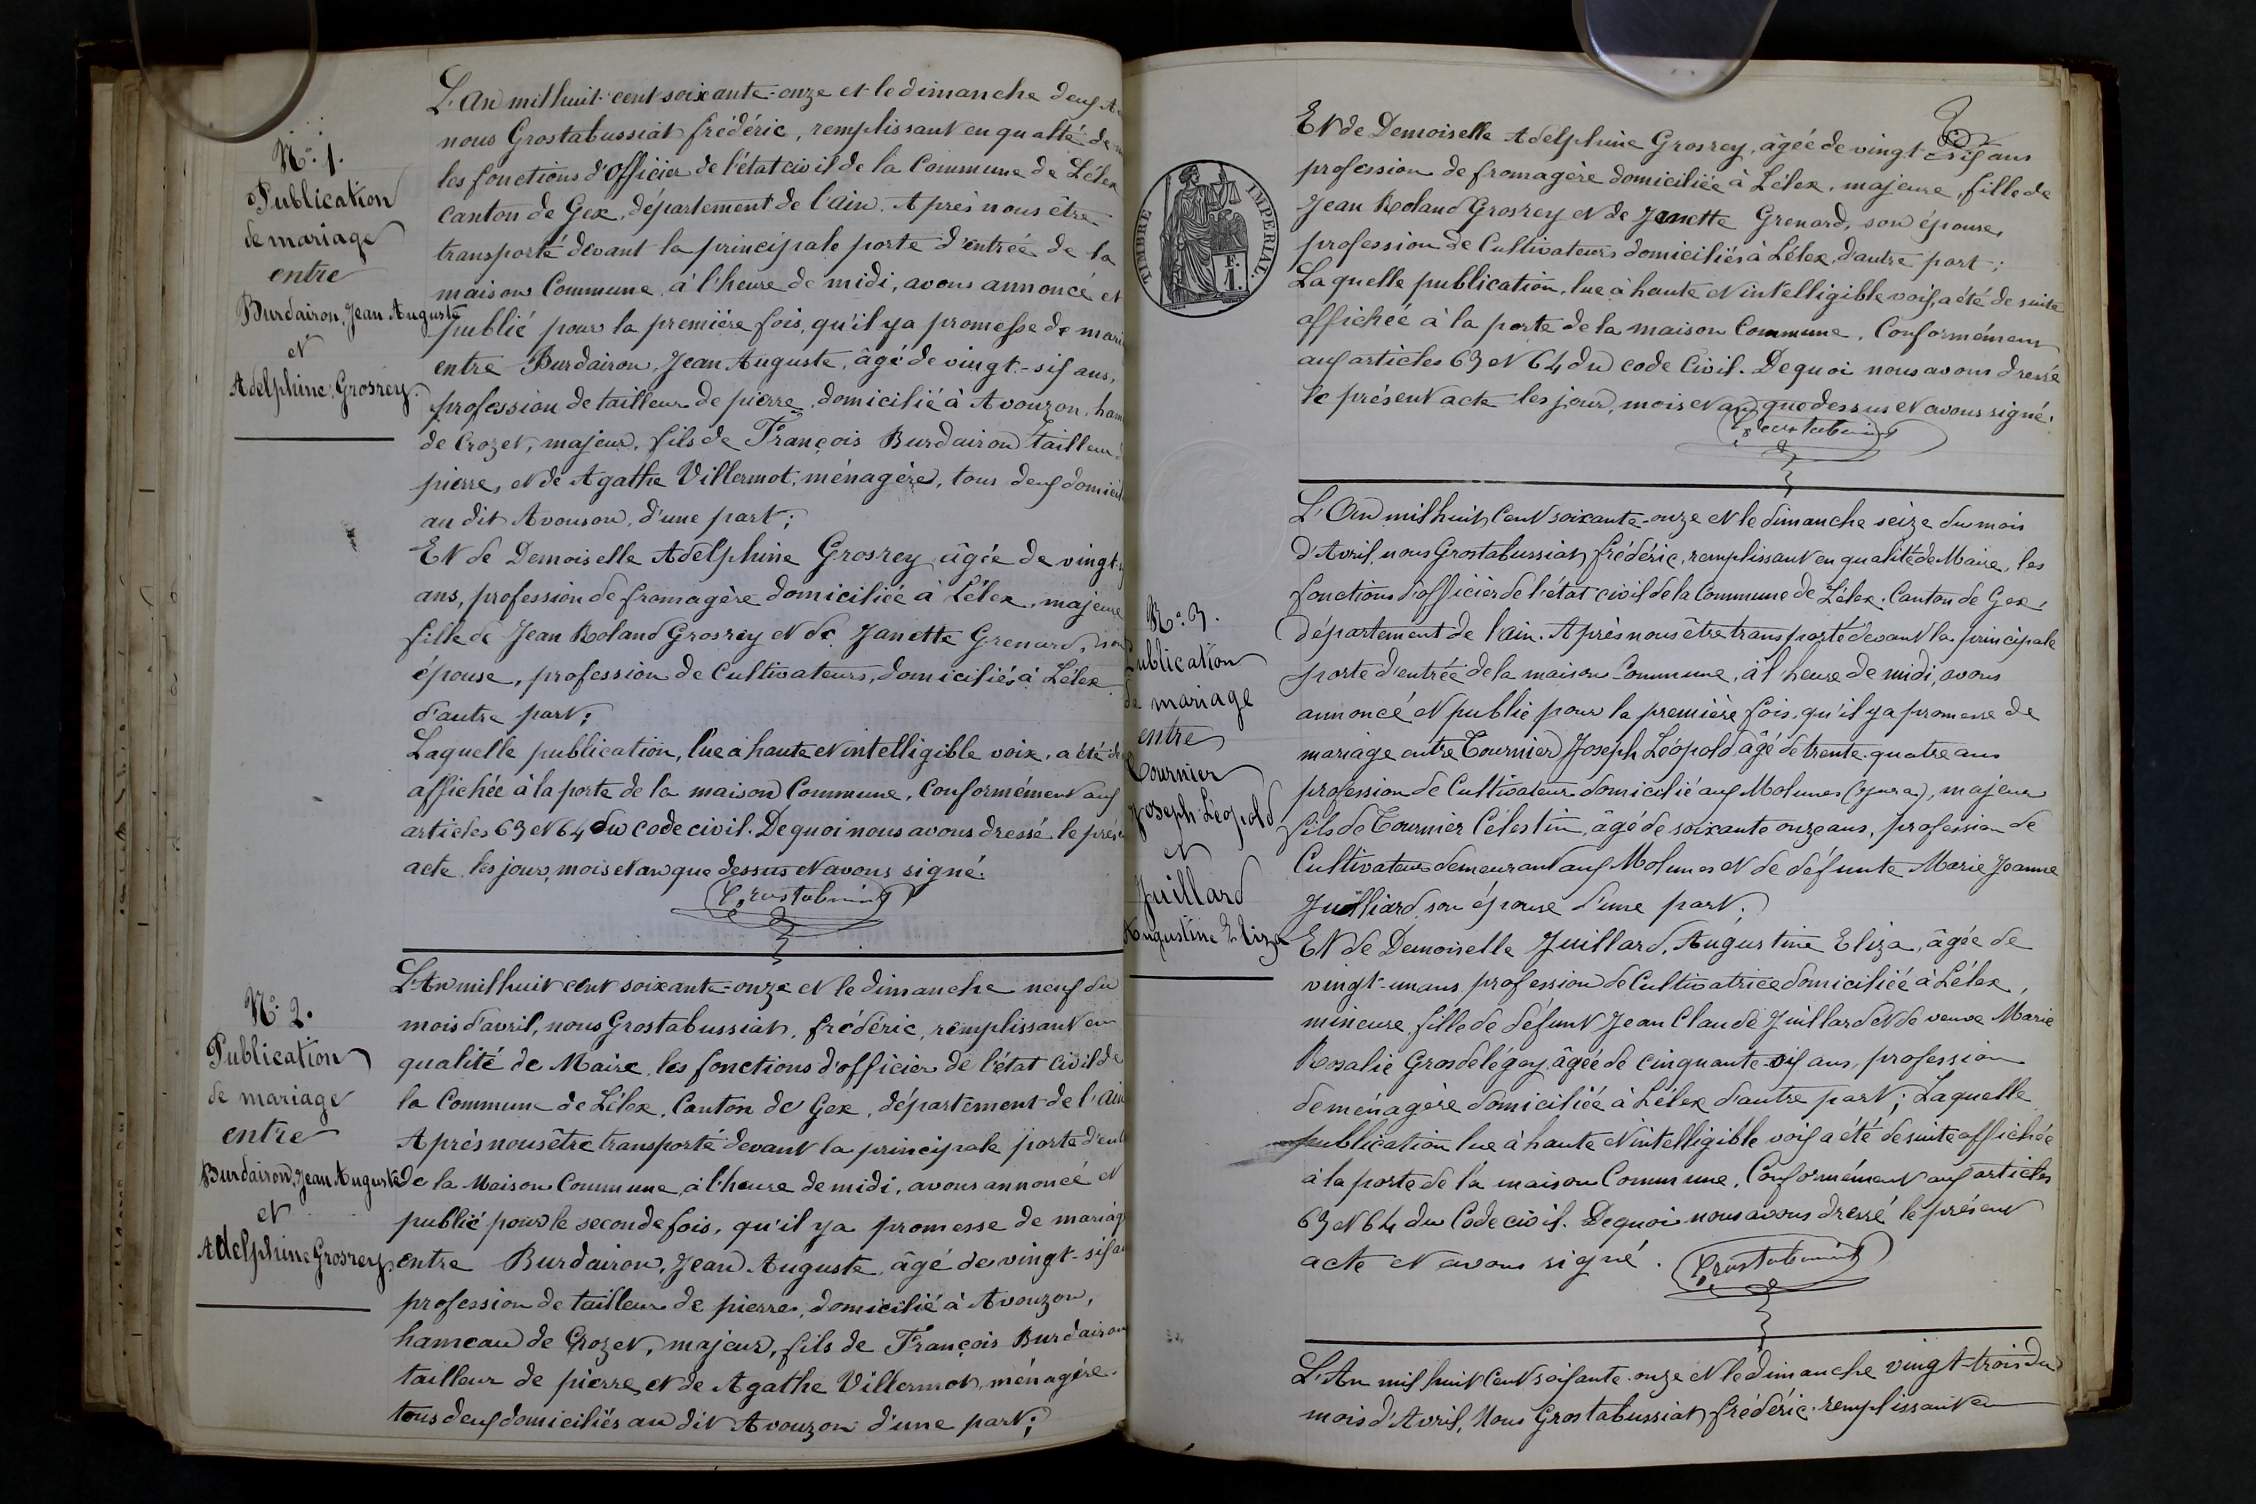 N.o 1.
Publication
de mariage
entre
Burdairon, Jean Auguste
et
Adelphine Grosrey.
L'An mil huit cent soixante-onze et le dimanche deux
nous Grostabussiat frédéric, remplissant en qualté de
les fonctions d'Officier de l'état civil de la Commune de Lélex
canton de Gex, département de l'ain. Après nous être
transporté devant la principale porte d'entrée de la
maison Commune à l'heure de midi, avons annoncé et
publié pour la première fois, qu'il y a promesse de mari
entre Burdairon, Jean Auguste, âgé de vingt-six ans,
profession de tailleur de pierre, domicilié à Avouzon, ham
de Crozet, majeur, fils de François Burdairon tailleur
pierre, et de Agathe Villermot, ménagère, tous deux domicil
au dit Avouson, d'une part;
Et de Demoiselle Adelphine Grosrey, âgée de vingt
ans, profession de fromagère domiciliée à Lélex, majeure
fille de Jean Roland Grosrey et de Janette Grenard, son
épouse, profession de Cultivateurs, domiciliés à Lélex
d'autre part;
Laquelle publication, lue à haute et intelligible voix, a été de
affichée à la porte de la maison Commune, Conformément aux
articles 63 et 64 du code civil. De quoi nous avons dressé le prés
acte les jour, mois et an que dessus et avons signé.
Grostabussiat
N.o 2.
Publication
de mariage
entre
Burdairon, Jean Auguste
et
Adelphine Grosrey
L'An mil huit cent soixante-onze et le dimanche neuf du
mois d'avril, nous Grostabussiat, frédéric, remplissant en
qualité de Maire, les fonctions d'officier de l'état civil de
la Commune de Lélex, Canton de Gex, département de l'ain
Après nous être transporté devant la principale porte d'ent
de la Maison Commune, à l'heure de midi, avons annoncé et
publié pour la seconde fois, qu'il y a promesse de mariag
entre Burdairon, Jean Auguste, âgé de vingt-six an
profession de tailleur de pierres, domicilié à Avouzon,
hameau de Crozet, majeur, fils de François Burdairon
tailleur de pierre, et de Agathe Villermot, ménagère.
tous deux domiciliés au dit Avouzon d'une part;
TIMBRE IMPERIAL.
F.
1.
Et de Demoiselle Adelphine Grosrey, âgée de vingt-six ans
profession de fromagère domiciliée à Lélex, majeure, fille de
Jean Roland Grosrey et de Janette Grenard, son épouse,
profession de Cultivateurs domiciliés à Lélex, d'autre part;
Laquelle publication, lue à haute et intelligible voix, a été de suite
affichée à la porte de la maison Commune, Conformément
aux articles 63 et 64 du code Civil. De quoi nous avons dressé
le présent acte les jour, mois et an que dessus et avons signé.
Grostabussiat
N.o 3.
Publication
de mariage
entre
Tournier
Joseph Léopold
et
Juillard
Augustine Eliza
L'An mil huit Cent soixante-onze et le dimanche seize du mois
d'Avril, nous Grostabussiat, frédéric, remplissant en qualité de Maire, les
fonctions d'officier de l'état civil de la Commune de Lélex, Canton de Gex,
département de l'ain. Après nous être transporté devant la principale
porte d'entrée de la maison Commune, à l'heure de midi, avons
annoncé et publié pour la première fois, qu'il y a promesse de
mariage entre Tournier Joseph Léopold âgé de trente-quatre ans
profession de Cultivateur domicilié aux Molunes (Jura), majeur
fils de Tournier Célestin, âgé de soixante onze ans, profession de
Cultivateur demeurant aux Molunes et de défunte Marie Jeanne
Juilliard, son épouse d'une part.
Et de Demoiselle Juillard, Augustine Eliza, âgée de
vingt-un ans, profession de Cultivatrice domiciliée à Lélex,
mineure, fille de défunt Jean Claude Juillard et de veuve Marie
Rosalie Grosdelégoy, âgée de cinquante-six ans, profession
de ménagère domiciliée à Lélex d'autre part; Laquelle
publication lue à haute et intelligible voix a été de suite affichée
à la porte de la maison Commune, Conformément aux articles
63 et 64 du Code civil. De quoi nous avons dressé le présent
acte et avons signé. Grostabussiat
L'An mil huit Cent soixante-onze et le dimanche vingt-trois du
mois d'Avril, Nous Grostabussiat, frédéric, remplissant en